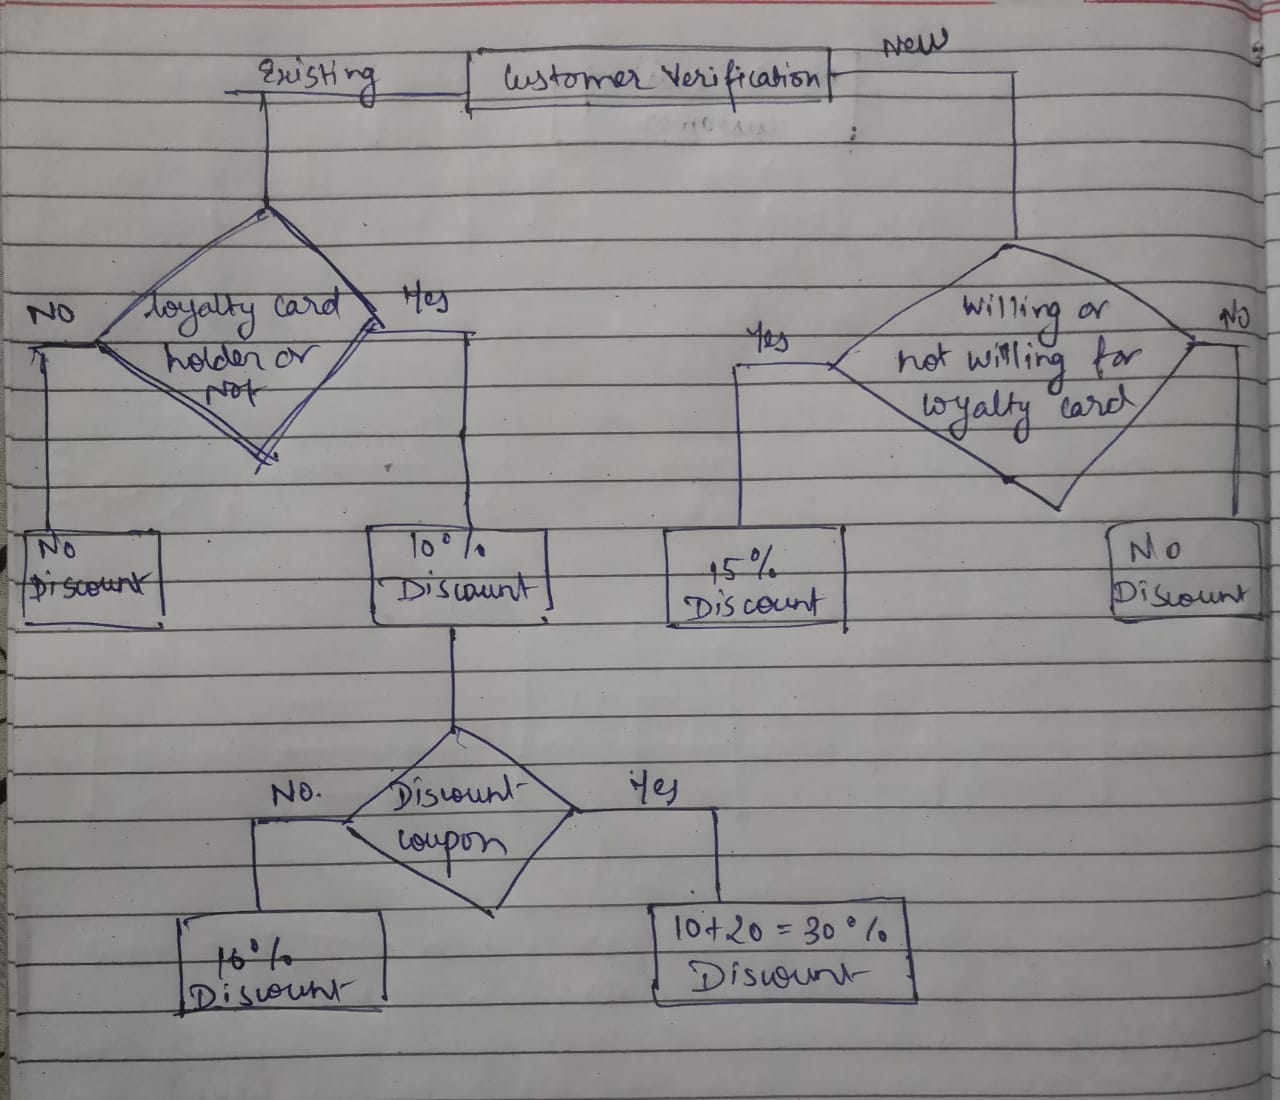 Existing
Customer Verification
New
NO
loyalty card
holder or
Not
Yes
Yes
Willing or
not willing for
loyalty card
No
No
Discount
10%
Discount
15%
Discount
No
Discount
No.
Discount
coupon
Yes
10%
Discount
10+20 = 30%
Discount